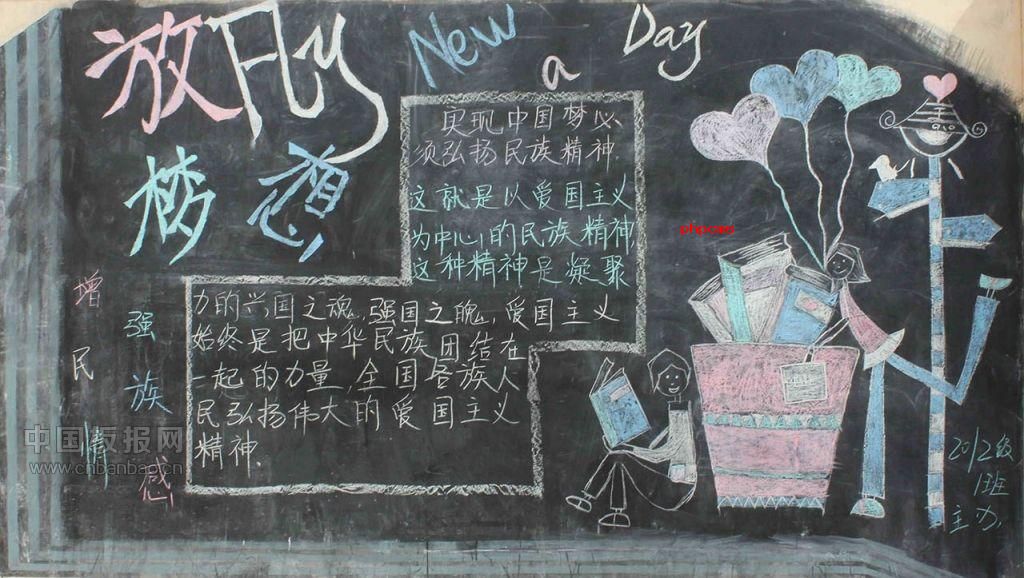 放Fly
New a Day
梦想
实现中国梦必
须弘扬民族精神.
这就是以爱国主义
为中心的民族精神,
这种精神是凝聚
力的兴国之魂,强国之魄,爱国主义
始终是把中华民族团结在
一起的力量,全国各族人
民弘扬伟大的爱国主义
精神.
增强民族情感
2012级
1班
主办.
中国板报网
www.cnbanbao.cn